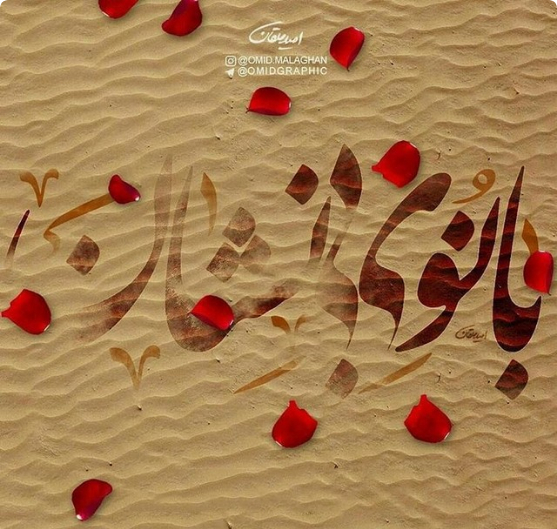 امید ملقان
@OMID.MALAGHAN
@OMIDGRAPHIC
بانوی بی نشان
امید ملقان